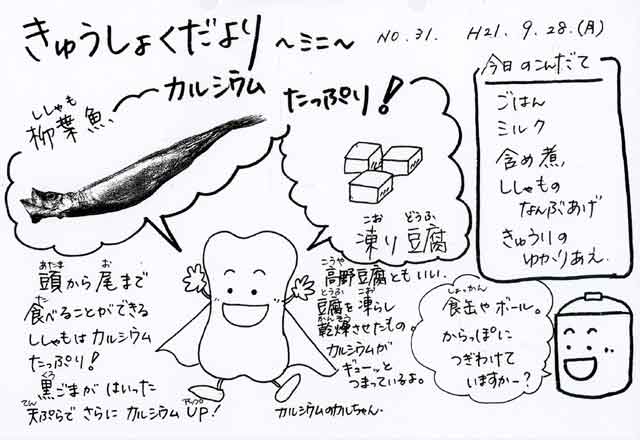 きゅうしょくだより ～ミニ～ NO.31. H21.9.28.(月)
カルシウム たっぷり!
ししゃも
柳葉魚
こお どうふ
凍り豆腐
今日のこんだて
ごはん
ミルク
含め煮
ししゃもの
なんぶあげ
きゅうりの
ゆかりあえ
あたま お
頭から尾まで
た
食べることができる
ししゃもはカルシウム
たっぷり!
くろ
黒ごまがはいった
てん アップ
天ぷらでさらにカルシウムUP!
こうや
高野豆腐ともいい、
とうふ こお
豆腐を凍らし
かんそう
乾燥させたもの。
カルシウムが
ギューッと
つまっているよ。
カルシウムのカルちゃん
しょっかん
食缶やボール。
からっぽに
つぎわけて
いますかー?